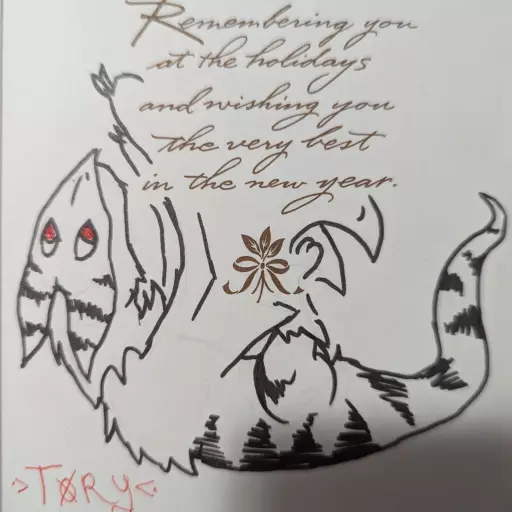 Remembering you
at the holidays
and wishing you
the very best
in the new year.
>TØRY<